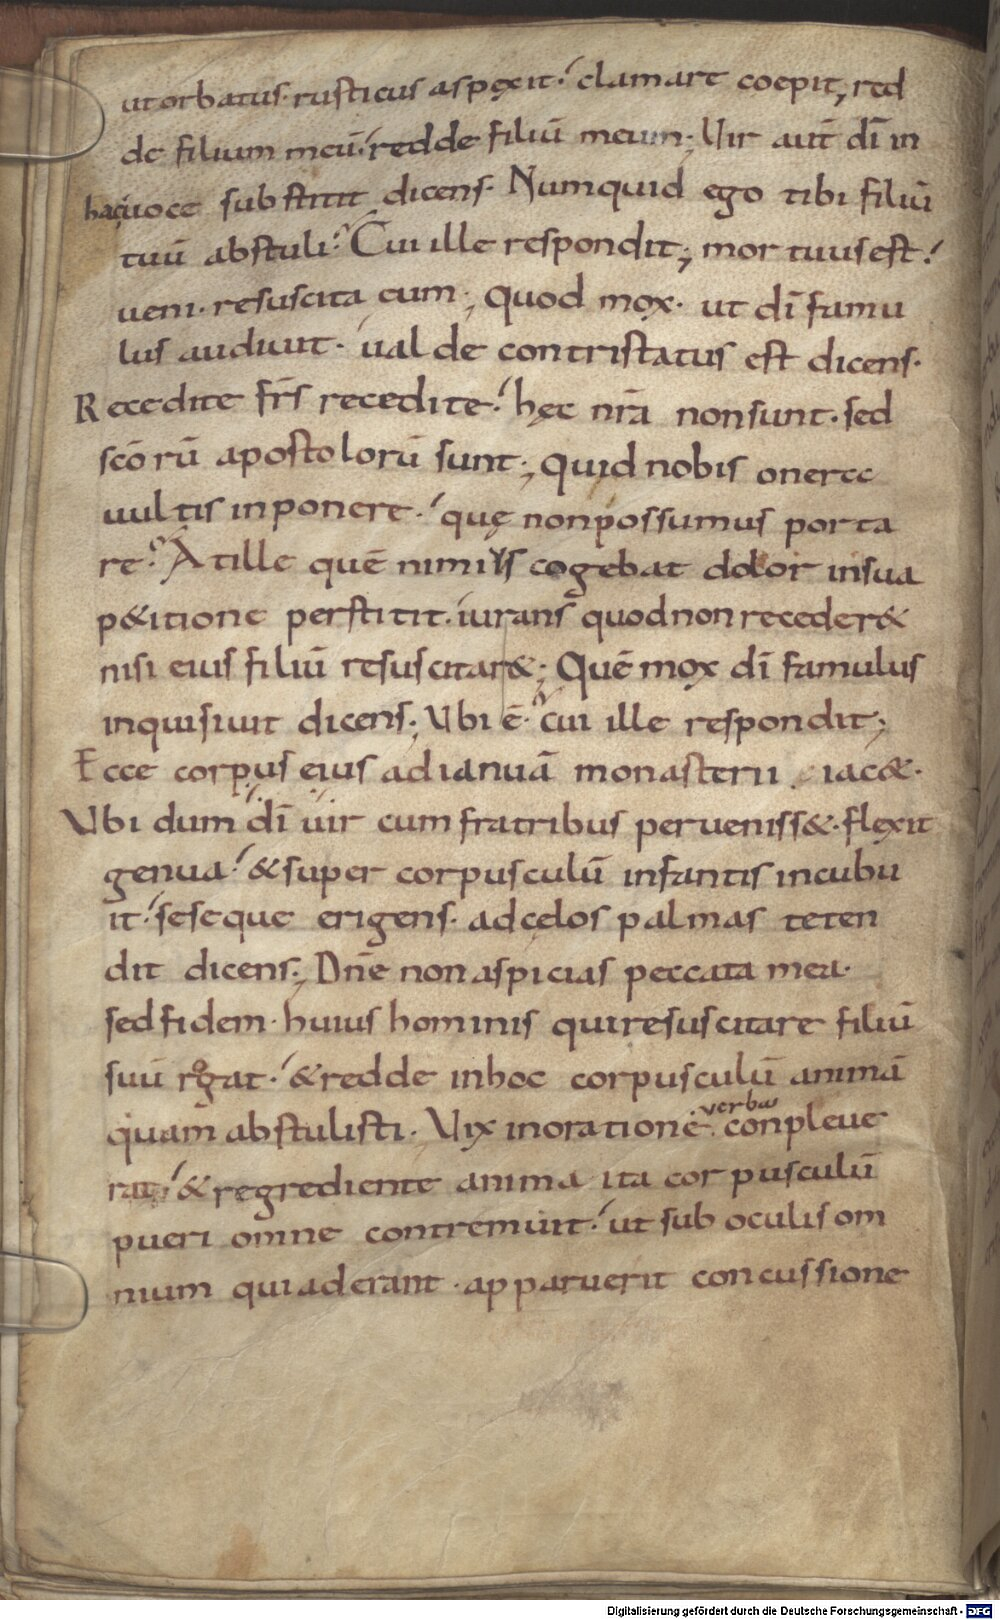 ut orbatus· rusticus aspexit· clamare coepit; red
de filium meū· redde filiū meum; Vir aut̄ dī in
hac uoce substitit dicens· Numquid ego tibi filiū
tuū abstuli? Cui ille respondit; mortuus est·
ueni· resuscita eum; Quod mox· ut dī famu
lus audiuit· ualde contristatus est dicens·
Recedite fr̄s recedite· hęc nr̄a non sunt· sed
sc̄orū apostolorū sunt; Quid nobis onera
uultis inponere· quę non possumus porta
re? At ille quē nimius cogebat dolor in sua
p&itione perstitit· iurans quod non receder&
nisi eius filiū resuscitar&; Quē mox dī famulus
inquisiuit dicens; Vbi ē? cui ille respondit;
Ecce corpus eius ad ianuā monasterii iac&·
Vbi dum dī uir cum fratribus perueniss&· flexit
genua· & super corpusculū infantis incubu
it· seseque erigens· ad cęlos palmas teten
dit dicens; Dn̄e non aspicias peccata mea·
sed fidem· huius hominis qui resuscitare filiū
suū rogat· & redde in hoc corpusculū animā
quam abstulisti· Vix in oratione verba conpleue
rat· & regrediente anima ita corpusculū
pueri omne contremuit· ut sub oculis om
nium qui aderant· apparuerit concussione
Digitalisierung gefördert durch die Deutsche Forschungsgemeinschaft - DFG